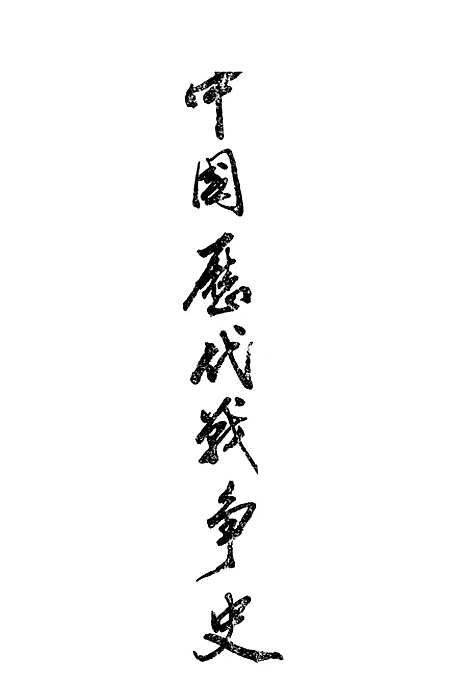 中国歷代战争史